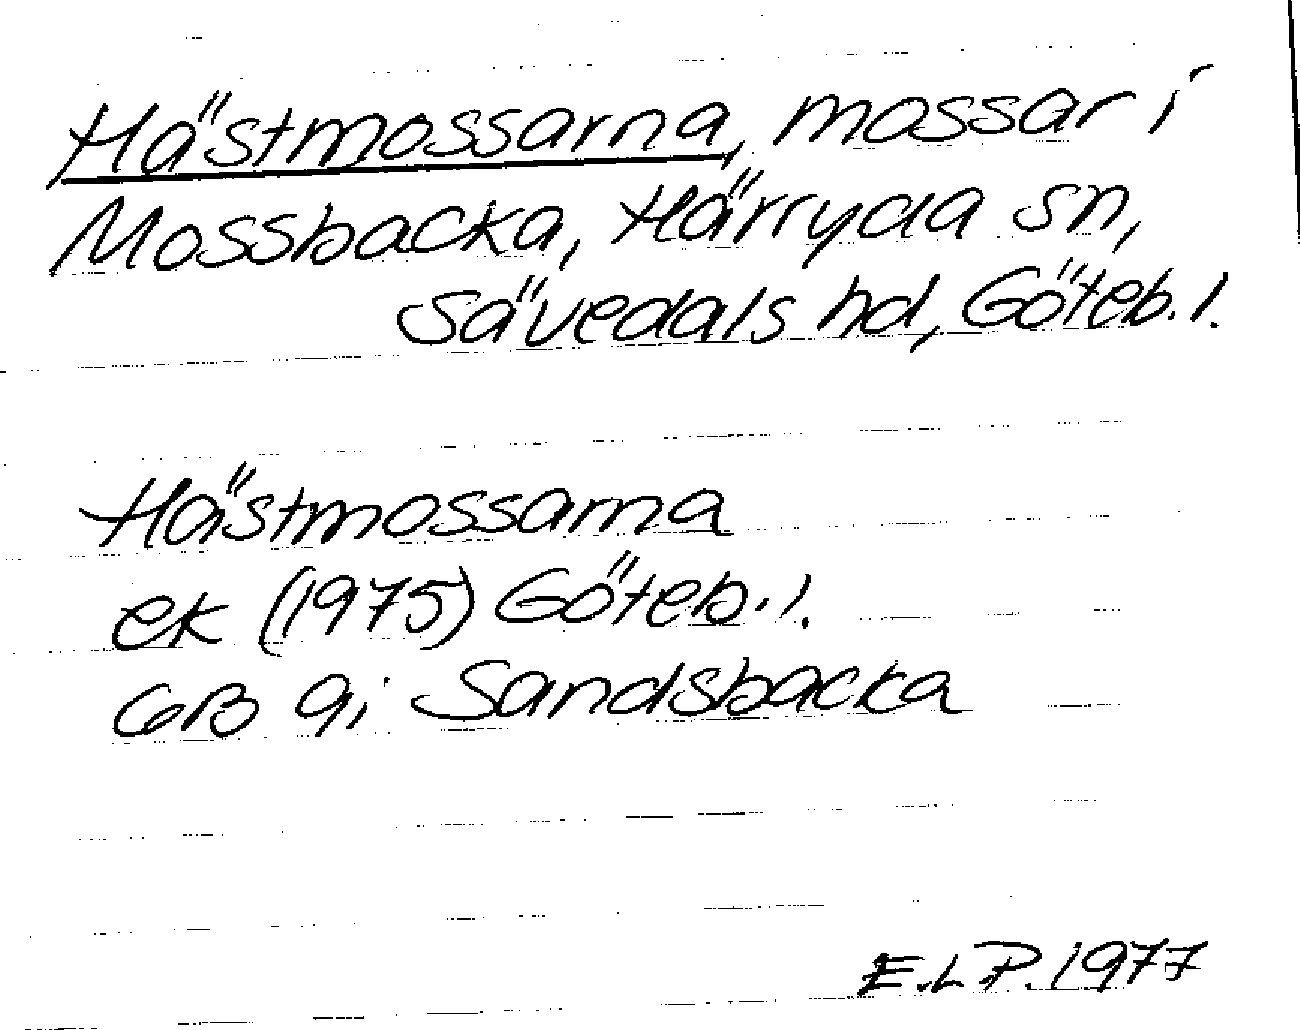 Hästmossarna, mossar i
Mossbacka, Härryda sn,
Sävedals hd, Göteb. l.
Hästmossarna
ek (1975) Göteb. l.
GB 9i Sandsbacka
E.L.P. 1977